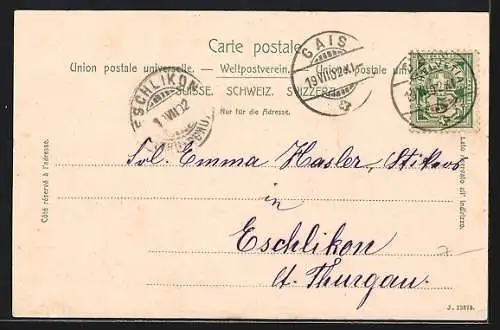 Carte postale.
Union postale universelle. — Weltpostverein. — Unione postale
SUISSE. SCHWEIZ. SVIZZERA.
Nur für die Adresse.
GAIS
19.VII.02.XI
ESCHLIKON
VII 02
HELVETIA
Côté réservé à l'adresse.
Lato riservato all' indirizzo.
Emma Hasler,
in
Eschlikon
Ct. Thurgau.
J. 12878.